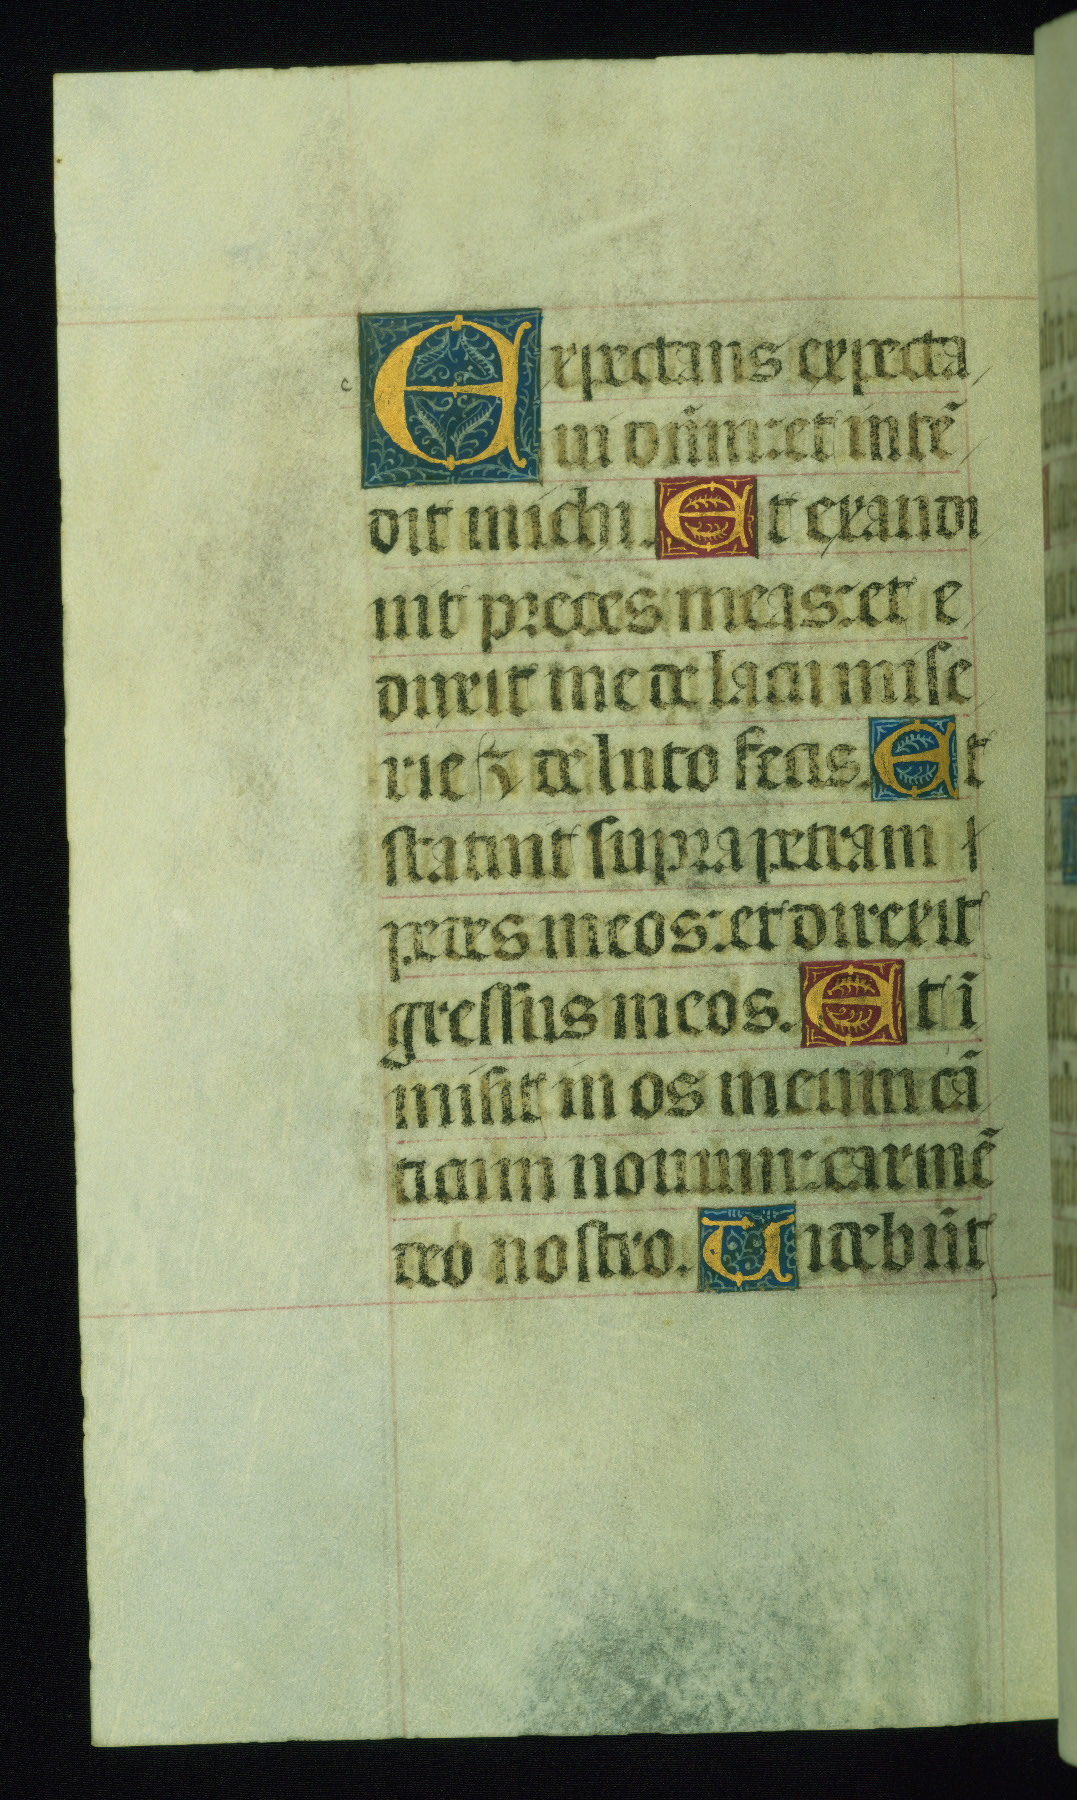 Expectans expecta
ui dñm: et intẽ
dit michi. Et exaudi
uit preces meas: et e
duxit me de lacu mise
rie ⁊ de luto fecis. Et
statuit supra petram
pedes meos: et direxit
gressus meos. Et ĩ
misit in os meum cã
ticum nouum: carmẽ
deo nostro. Uidebũt